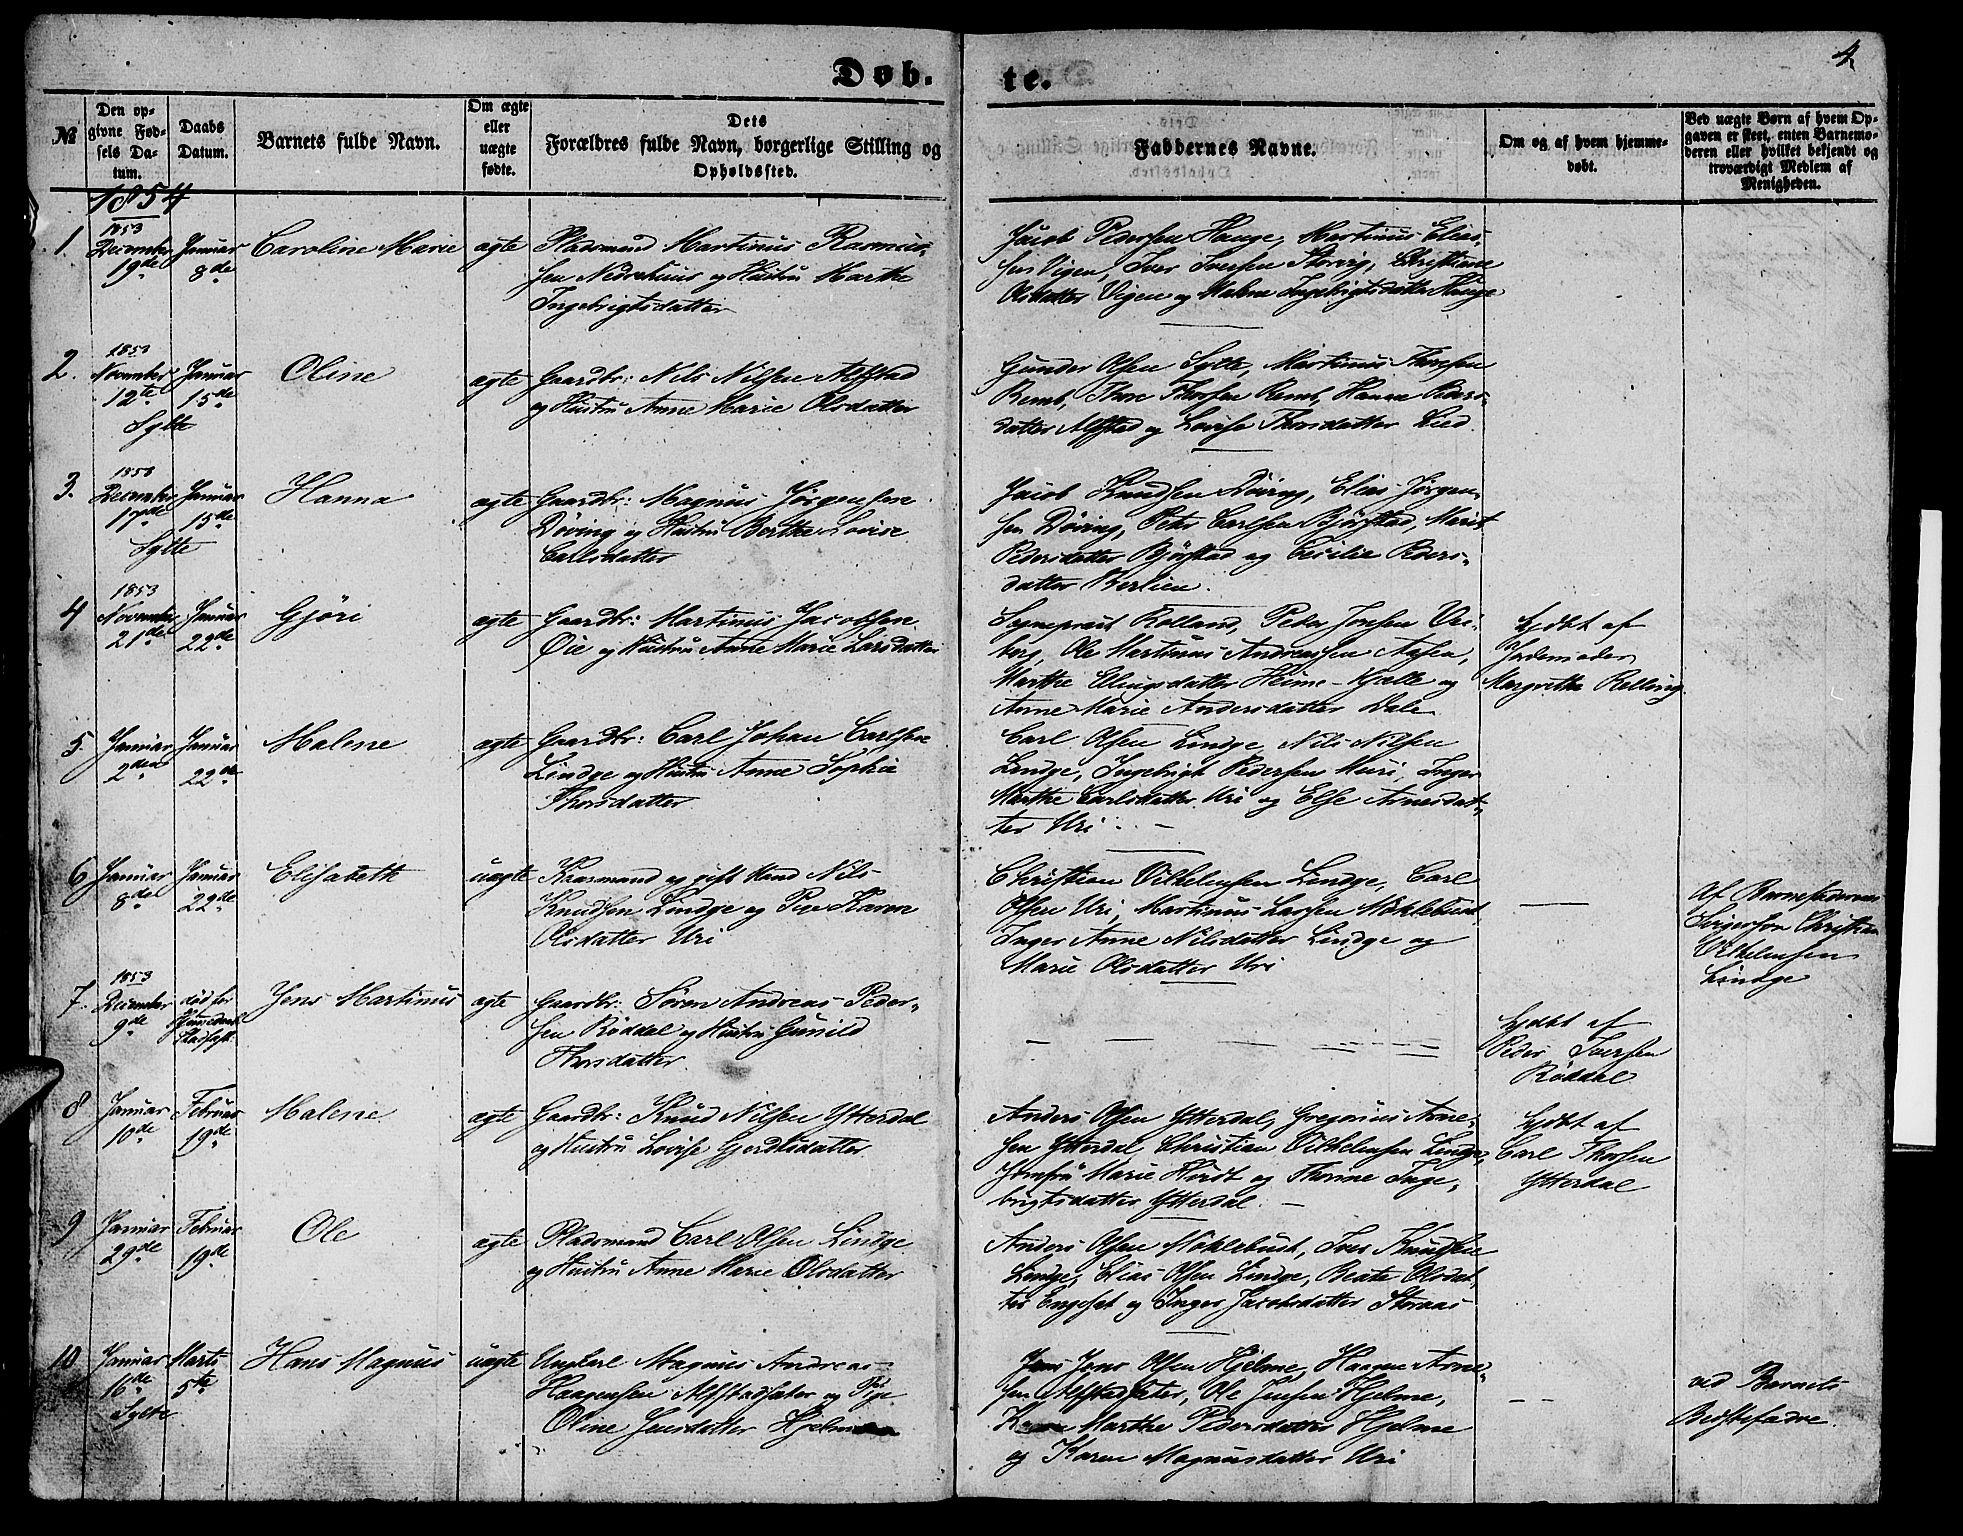 Døb. te.
4
№
Den op-
givne Fød-
sels Da-
tum.
Daabs
Datum.
Barnets fulde Navn.
Om ægte
eller
uægte
fødte.
Dets
Forældres fulde Navn, borgerlige Stilling og
Opholdssted.
Faddernes Navne.
Om og af hvem hjemme-
døbt.
Ved uægte Børn af hvem Op-
gaven er skeet, enten Barnemo-
deren eller hvilket bekjendt og
troværdigt Medlem af
Menigheden.
1854
1.
1853
December
19de
Januar
8de
Caroline Marie
ægte
Pladsmand Martinus Rasmus-
sen Nedrehuus og Hustru Marthe
Ingebrigtsdatter
Jacob Pedersen Hauge, Martinus Elias-
sen Vigen, Iver Iversen Storvig, Christiane
Olsdatter Vigen og Malene Ingebrigtsdatter Hauge
2.
1853
November
12te
Sylte
Januar
15de
Oline
ægte
Gaardbr: Nils Nilsen Alfstad
og Hustru Anne Marie Olsdatter
Gunder Olsen Sylte, Martinus Thorsen
Remb, Thore Thorsen Remb, Hanna Peders-
datter Alfstad og Lovise Thorsdatter Lied.
3.
1853
December
17de
Sylte
Januar
15de
Hanna
ægte
Gaardbr: Magnus Jørgensen
Døving og Hustru Berthe Lovise
Carlsdatter
Jacob Knudsen Døving, Elias Jørgen-
sen Døving, Peter Carlsen Bjørstad, Marit
Pedersdatter Bjørstad og Cecilia Peders-
datter Berlien.
4
1853
November
21de
Januar
22de
Gjøri
ægte
Gaardbr: Martinus Jacobsen
Øie og Hustru Anne Marie Larsdatter
Sogneprest Rolland, Peder Jonsen Vi-
borg, Ole Martinus Andreassen Aasen,
Marthe Ellingsdatter Heime-Kjelle og
Anne Marie Andersdatter Dale
hjdbt af
Jordemoder
Margrethe Relling
5
Januar
2den
Januar
22de
Malene
ægte
Gaardbr: Carl Johan Carlsen
Lindge og Hustru Anne Sophie
Thorsdatter
Carl Olsen Lindge, Nils Nilsen
Lindge, Ingebrigt Pedersen Muri, Inger
Marthe Carlsdatter Uri og Else Arnesdat-
ter Uri
6
Januar
8de
Januar
22de
Elisabeth
uægte
Kaarmand og gift Mand Nils
Knudsen Lindge og Pige Karen
Olsdatter Uri
Christian Vilhelmsen Lindge, Carl
Olsen Uri, Martinus Larsen Møklebust
Inger Anne Nilsdatter Lindge og
Marie Olsdatter Uri
Af Barnefaderens
Svigersøn Christian
Vilhelmsen
Lindge
7.
1853
December
9de
død før
Daaben
Stadfæst.
Jens Martinus
ægte
Gaardbr: Søren Andreas Peder-
sen Røddal og Hustru Gunild
Thorsdatter
hjdbt af
Peder Iversen
Røddal
8
Januar
10de
Februar
19de
Malene
ægte
Gaardbr: Knud Nilsen Ytterdal
og Hustru Lovise Gjerdtsdatter
Anders Olsen Ytterdal, Gregorius Arne-
sen Ytterdal, Christian Vilhelmsen Lindge,
Jomfru Marie Hirdt og Thorine Inge-
brigtsdatter Ytterdal.
hjdbt af
Carl Thorsen
Ytterdal
9
Januar
29de
Februar
19de
Ole
ægte
Pladsmand Carl Olsen Lindge
og Hustru Anne Marie Olsdatter
Anders Olsen Møklebust, Iver Knudsen
Lindge, Elias Olsen Lindge, Beate Olsdat-
ter Engeset og Inger Jacobsdatter Storaas
10
Januar
16de
Sylte
Marts
5te
Hans Magnus
uægte
Ungkarl Magnus Andreas
Haagensen Alfstadsæter og Pige
Oline Jensdatter Hjelme
Jens Olsen Hjelme, Haagen Arne-
sen Alfstadsæter, Ole Jensen Hjelme,
Marthe Pedersdatter Hjelme
og Karen Magnusdatter Uri
ved Barnets
Bedstefader.